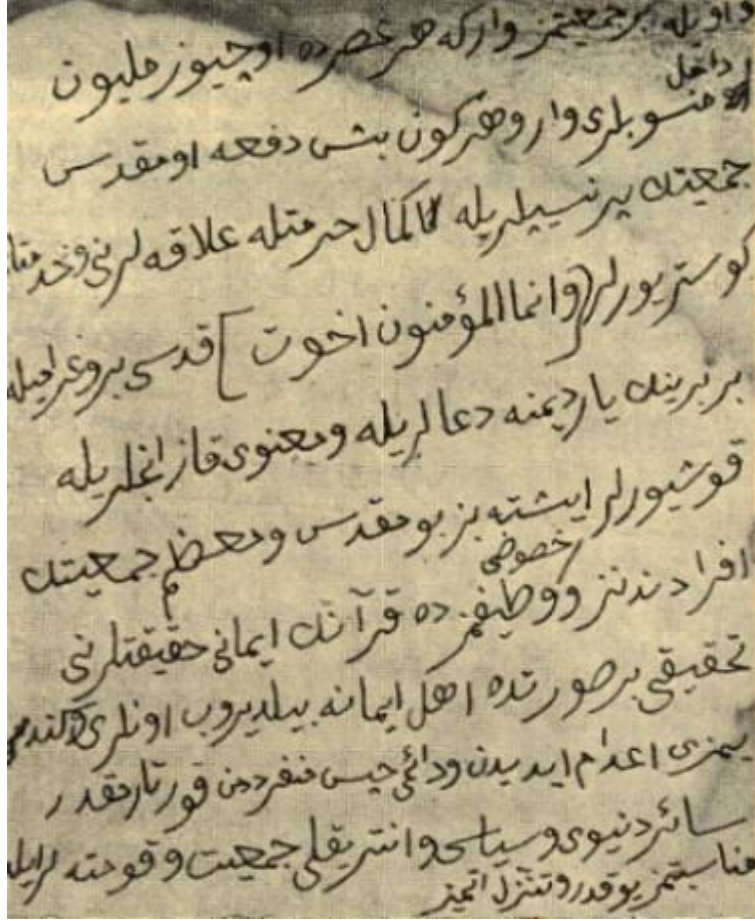 و اویله بر جمعیتمز وار که هر عصرده اوچیوز ملیون
داخل
منسوبلری وار و هر کون بش دفعه او مقدس
جمعیتك پرنسیپلریله کمال حرمتله علاقه لرینی و خدمتلر
کوستریورلر [و انما المؤمنون اخوت] قدسی پروغرامیله
بربرینك یاردیمنه دعالریله و معنوی قازانجلریله
قوشیورلر ایشته بز بو مقدس و معظم جمعیتك
خصوصی
افرادندنز و وظیفمز ده قرآنك ایمانی حقیقتلرنی
تحقیقی بر صورتده اهل ایمانه بیلدیروب اونلری و کندی
یمزی اعدام ابدیدن و دائمی حبس منفرددن قورتارمقدر
سائر دنیوی و سیاسی و انتریقلی جمعیت و قومته لرایله
مناسبتمز یوقدر و تنزل اتمیز